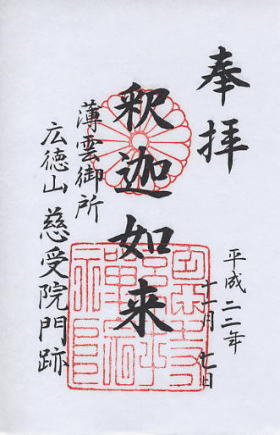 奉拝
平成二二年
十一月七日
釈迦如来
薄雲御所
広徳山 慈受院門跡